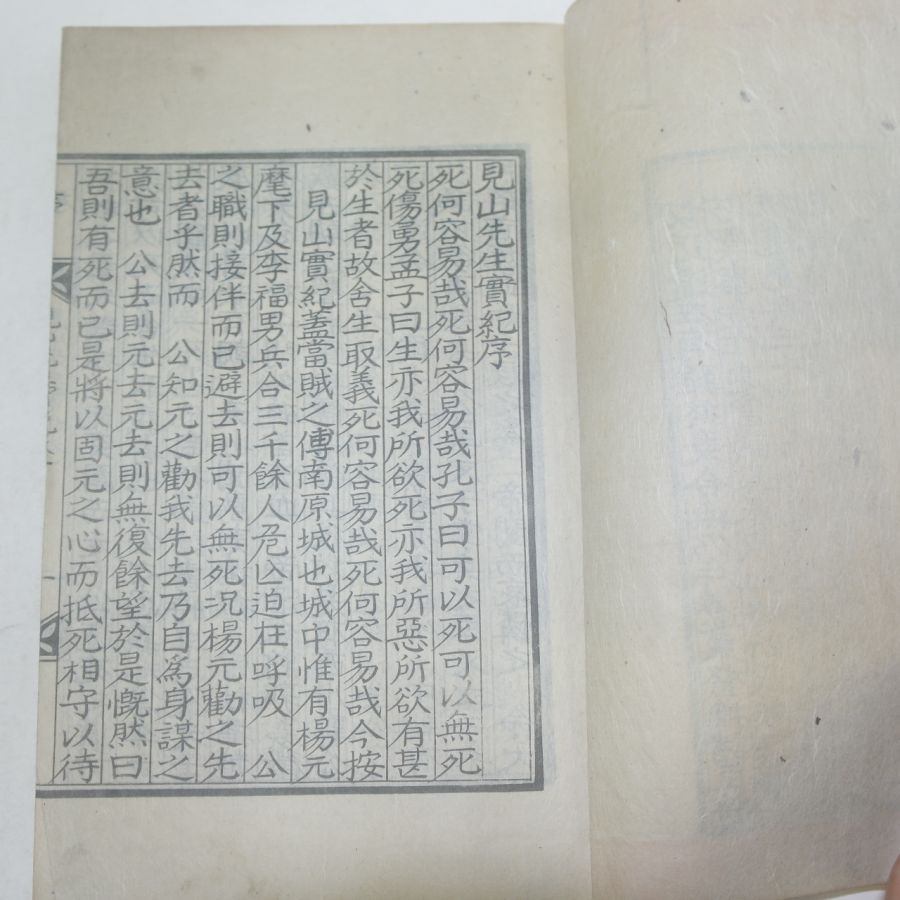 見山先生實紀序
死何容易哉死何容易哉孔子曰可以死可以無死
死傷勇孟子曰生亦我所欲死亦我所惡所欲有甚
於生者故舍生取義死何容易哉死何容易哉今按
見山實紀蓋當賊之傳南原城也城中惟有楊元
麾下及李福男兵合三千餘人危亾迫在呼吸　公
之職則接伴而已避去則可以無死况楊元勸之先
去者乎然而　公知元之勸我先去乃自爲身謀之
意也　公去則元去元去則無復餘望於是慨然曰
吾則有死而已是將以固元之心而抵死相守以待